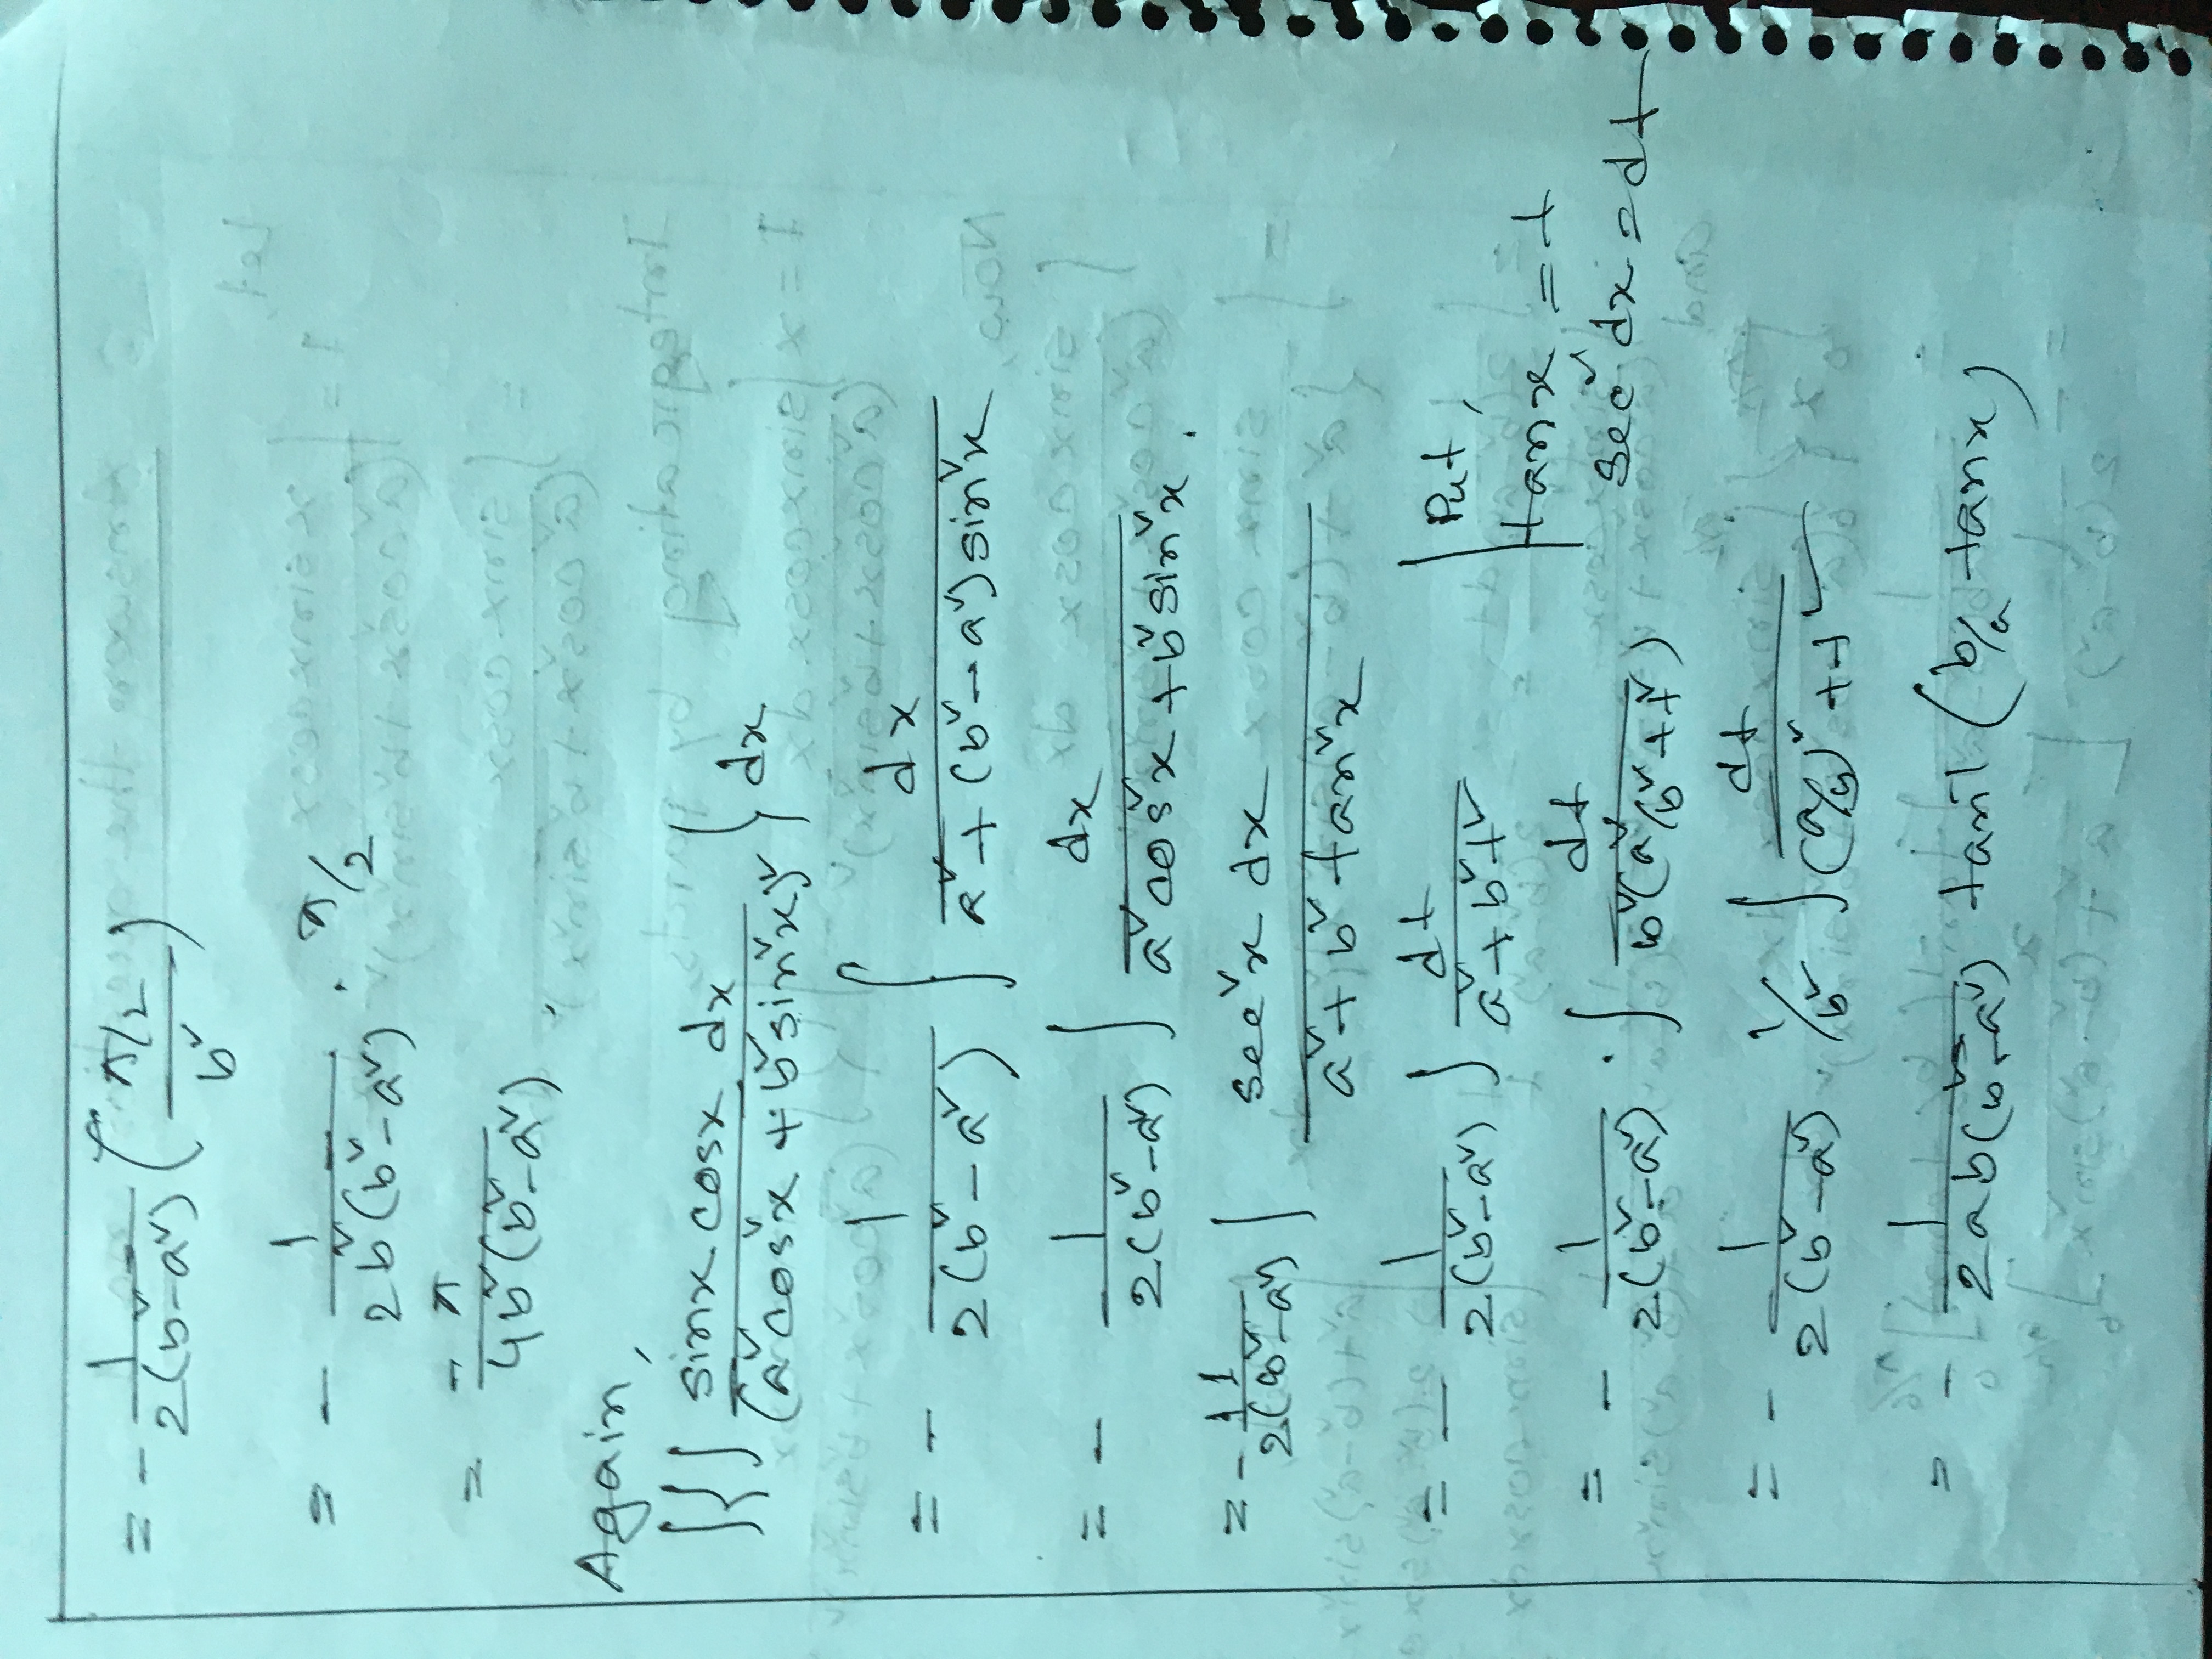 = - 1/(2(b²-a²)) ( (π/2)/b² )
= - 1/(2b²(b²-a²)) · π/2
= -π/(4b²(b²-a²)).
Again,
∫{∫ sinx cosx dx/(a²cos²x + b²sin²x)² } dx
= - 1/(2(b²-a²)) ∫ dx/(a²+(b²-a²)sin²x)
= - 1/(2(b²-a²)) ∫ dx/(a²cos²x+b²sin²x).
= - 1/(2(b²-a²)) ∫ sec²x dx/(a²+b²tan²x)
= - 1/(2(b²-a²)) ∫ dt/(a²+b²t²)
Put,
tanx = t
sec² dx = dt
= - 1/(2(b²-a²)) · ∫ dt/(b²(a²/b²+t²))
= - 1/(2(b²-a²)) · 1/b² ∫ dt/((a/b)²+t²)
= - 1/(2ab(b²-a²)) tan⁻¹(b/a tanx)